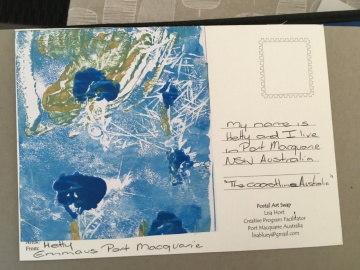 My name is
Hetty and I live
in Port Macquarie
NSW Australia.
"The coastline Australia"
Postal Art Swap
Lisa Hort
Creative Program Facilitator
Port Macquarie Australia
From: Hetty
Emmaus Port Macquarie